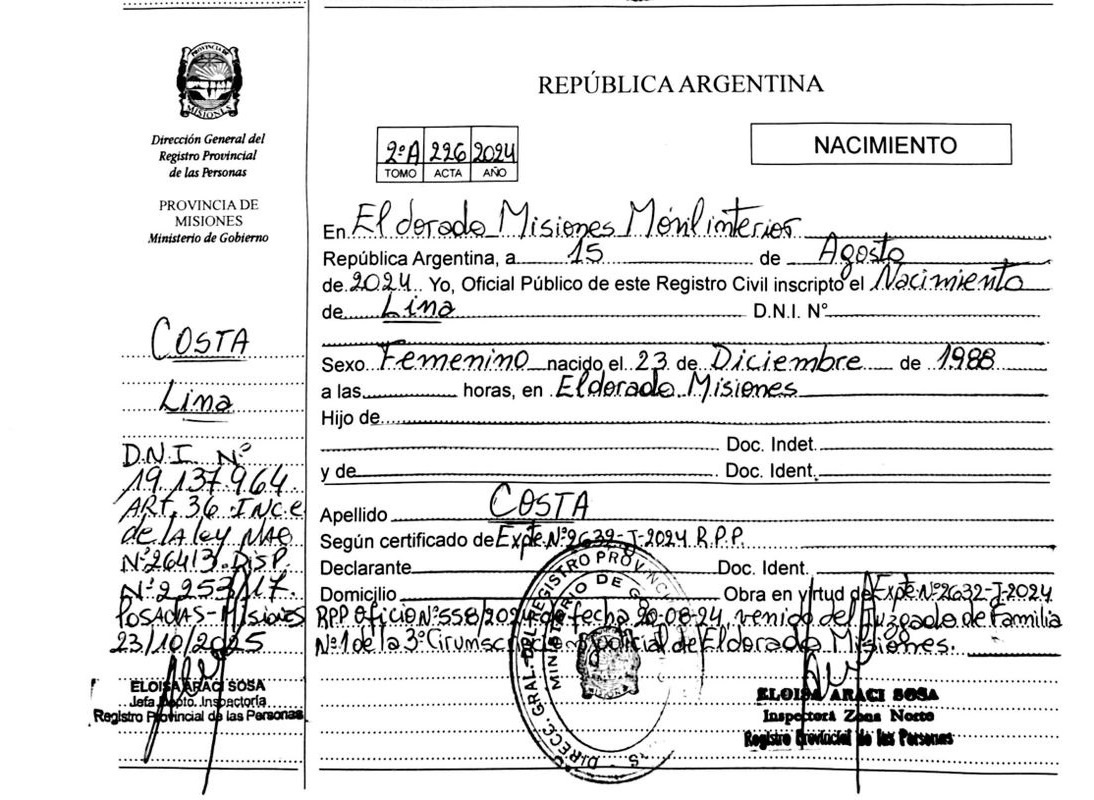 PROVINCIA DE
MISIONES
Dirección General del
Registro Provincial
de las Personas
PROVINCIA DE
MISIONES
Ministerio de Gobierno
COSTA
Lina
D.N.I. Nº
19.137.964
ART. 36 INC. e
de la ley NAC
Nº 26413. DISP.
Nº 2253/17.
POSADAS-Misiones
23/10/2025
ELOISA ARACI SOSA
Jefa Depto. Inspectoría
Registro Provincial de las Personas
REPÚBLICA ARGENTINA
2º A 226 2024
TOMO ACTA AÑO
NACIMIENTO
En El dorado Misiones Móvil interior
República Argentina, a 15 de Agosto
de 2024. Yo, Oficial Público de este Registro Civil inscripto el Nacimiento
de Lina D.N.I. N°
Sexo Femenino nacido el 23 de Diciembre de 1988
a las horas, en Eldorado Misiones
Hijo de
Doc. Indet.
y de Doc. Ident.
Apellido COSTA
Según certificado de Expte. Nº 2632-J-2024 R.P.P.
Declarante Doc. Ident.
Domicilio Obra en virtud de Expte. Nº 2632-J-2024
RPP Oficio Nº 558/202 de fecha 20-08-24, venido del Juzgado de Familia
Nº 1 de la 3º de Eldorado Misiones.
DIRECC. GRAL. DEL REGISTRO PROVINC
MINISTERIO DE G
ELOISA ARACI SOSA
Inspectora Zona Norte
Registro Provincial de las Personas